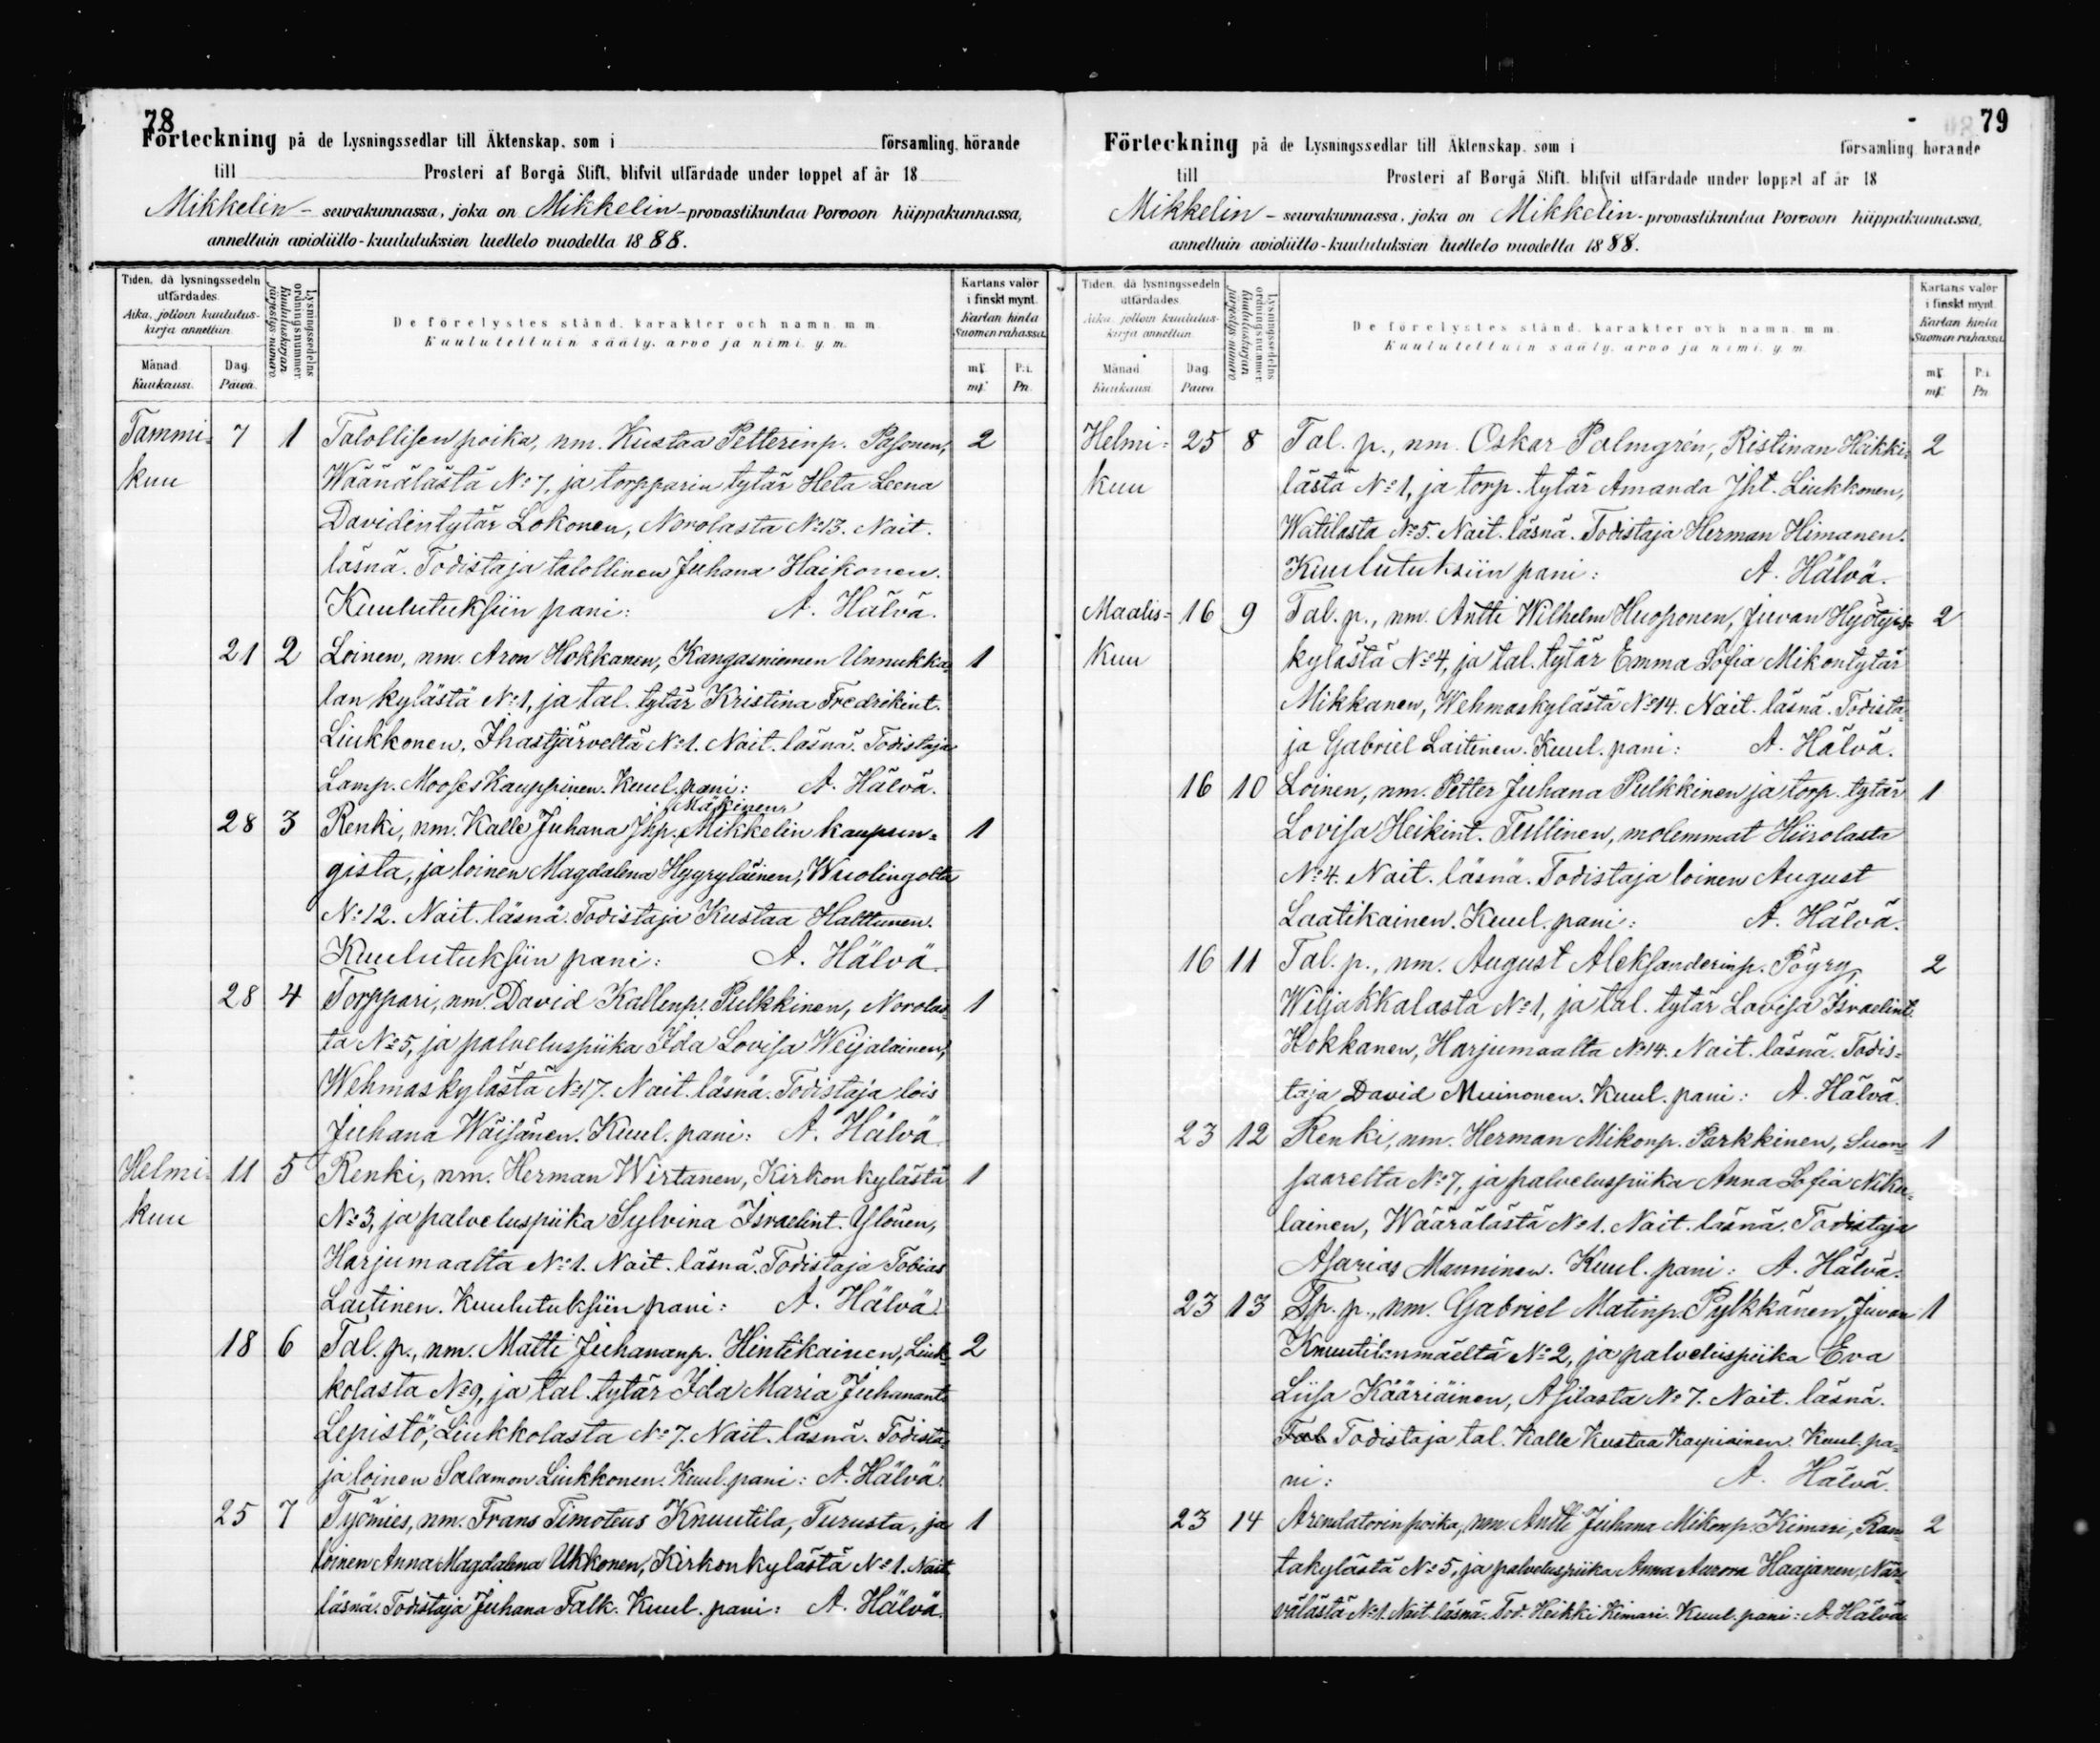 78
Förteckning på de Lysningssedlar till Äktenskap, som i församling, hörande
till Prosteri af Borgå Stift, blifvit utfärdade under loppet af år 18
Mikkelin - seurakunnassa, joka on Mikkelin - provastikuntaa Porvoon hiippakunnassa,
annettuin avioliitto-kuulutuksien luettelo vuodelta 1888.
Tiden, då lysningssedeln utfärdades.
Aika, jolloin kuulutus-kirja annettiin.
Månad. Kuukausi.
Dag. Päivä.
Lysningssedelns ordningsnummer
Kuulutuskirjan järjestys-numero
De förelystes stånd, karakter och namn m. m.
Kuulutettuin sääty, arvo ja nimi y. m.
Kartans valör i finskt mynt.
Kartan hinta Suomen rahassa.
mk P:i.
mk Pn.
Tammi= 7 1 Talollisen poika, nm. Kustaa Petterinp. Pasonen, 2
kuu Väänälästä No 7, ja torpparin tytär Heta Leena
Davidintytär Lokonen, Norolasta No 13. Nait.
läsnä. Todistaja talollinen Juhana Haikonen.
Kuulutuksiin pani: A. Hälvä.
21 2 Loinen, nm. Aron Hokkanen, Kangasniemen Unnukka= 1
lan kylästä No 1, ja tal. tytär Kristina Fredrikint.
Liukkonen, Ihastjärveltä No 1. Nait. läsnä. Todistaja
Lamp. Mooses Kauppinen. Kuul. pani: A. Hälvä.
Mäkinen
28 3 Renki, nm. Kalle Juhana Jhp. Mikkelin kaupun= 1
gista, ja loinen Magdalena Hyyryläinen, Wuolingolta
No 12. Nait. läsnä. Todistaja Kustaa Halttunen.
Kuulutuksiin pani: A. Hälvä.
28 4 Torppari, nm. David Kallenp. Pulkkinen, Norolas= 1
ta No 5, ja palveluspiika Ida Lovisa Weijalainen,
Wehmaskylästä No 17. Nait. läsnä. Todistaja lois
Juhana Wäisänen. Kuul. pani: A. Hälvä
Helmi= 11 5 Renki, nm. Herman Wirtanen, Kirkonkylästä 1
kuu No 3, ja palveluspiika Sylvina Israelint. Ylönen,
Harjumaalta No 1. Nait. läsnä. Todistaja Tobias
Laitinen. Kuulutuksiin pani: A. Hälvä.
18 6 Tal. p., nm. Matti Juhananp. Hintikainen, Liuk= 2
kolasta No 9, ja tal. tytär Ida Maria Juhanant.
Lepistö, Liukkolasta No 7. Nait. läsnä. Todista=
ja loinen Salamon Liukkonen. Kuul. pani: A. Hälvä.
25 7 Työmies, nm. Frans Timoteus Knuutila, Turusta, ja 1
loinen Anna Magdalena Ukkonen, Kirkonkylästä No 1. Nait.
läsnä. Todistaja Juhana Falk. Kuul. pani: A. Hälvä.
79
Förteckning på de Lysningssedlar till Äktenskap, som i församling hörande
till Prosteri af Borgå Stift, blifvit utfärdade under loppet af år 18
Mikkelin - seurakunnassa, joka on Mikkelin - provastikuntaa Porvoon hiippakunnassa,
annettuin avioliitto-kuulutuksien luettelo vuodelta 1888.
Tiden, då lysningssedeln utfärdades.
Aika, jolloin kuulutus-kirja annettiin.
Månad. Kuukausi.
Dag. Päivä.
Lysningssedelns ordningsnummer
Kuulutuskirjan järjestys-numero
De förelystes stånd, karakter och namn m. m.
Kuulutettuin sääty, arvo ja nimi y. m.
Kartans valör i finskt mynt.
Kartan hinta Suomen rahassa.
mk P:i.
mk Pn.
Helmi= 25 8 Tal. p., nm. Oskar Palmgrén, Ristinan Heikki= 2
kuu lästä No 1, ja torp. tytär Amanda Jht. Liukkonen,
Watilasta No 5. Nait. läsnä. Todistaja Herman Himanen.
Kuulutuksiin pani: A. Hälvä.
Maalis= 16 9 Tal. p., nm. Antti Wilhelm Huoponen, Juvan Hyötyis= 2
kuu kylästä No 4, ja tal. tytär Emma Sofia Mikontytär
Mikkanen, Wehmaskylästä No 14. Nait. läsnä. Todista=
ja Gabriel Laitinen. Kuul. pani: A. Hälvä.
16 10 Loinen, nm. Petter Juhana Pulkkinen ja torp. tytär 1
Lovisa Heikint. Tullinen, molemmat Hiirolasta
No 4. Nait. läsnä. Todistaja loinen August
Laatikainen. Kuul. pani: A. Hälvä.
16 11 Tal. p., nm. August Aleksanderinp. Pöyry, 2
Wiljakkalasta No 1, ja tal. tytär Lovisa Israelint.
Hokkanen, Harjumaalta No 14. Nait. läsnä. Todis=
taja David Muinonen. Kuul. pani: A. Hälvä.
23 12 Renki, nm. Herman Mikonp. Parkkinen, Suon= 1
saarelta No 7, ja palveluspiika Anna Sofia Niku=
lainen, Wäärälästä No 1. Nait. läsnä. Todistaja
Asarias Manninen. Kuul. pani: A. Hälvä.
23 13 Tp. p., nm. Gabriel Matinp. Pylkkänen, Juvan 1
Knuutilanmäeltä No 2, ja palveluspiika Eva
Liisa Kääriäinen, Asilasta No 7. Nait. läsnä.
Tal Todistaja tal. Kalle Kustaa Karpiainen. Kuul. pa=
ni: A. Hälvä.
23 14 Arendatorin poika, nm. Antti Juhana Mikonp. Kimari, Ran= 2
takylästä No 5, ja palveluspiika Anna Aurora Haajanen, När=
välästä No 1. Nait. läsnä. Tod. Heikki Kimari. Kuul. pani: A. Hälvä.